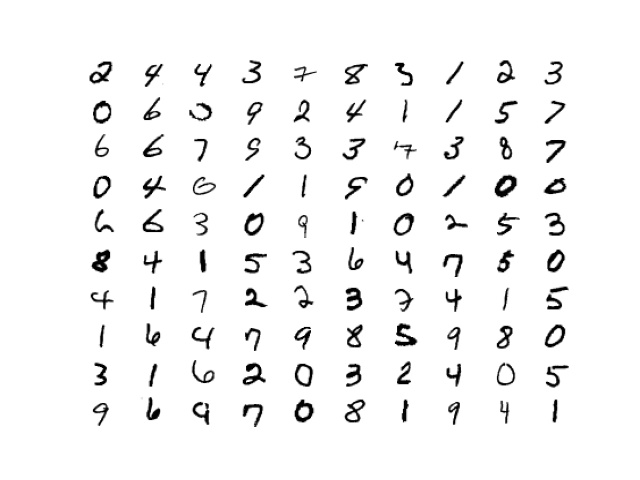 2 4 4 3 7 8 3 1 2 3
0 6 0 9 2 4 1 1 5 7
6 6 7 9 3 3 7 3 8 7
0 4 6 1 1 9 0 1 0 0
6 6 3 0 9 1 0 2 5 3
8 4 1 5 3 6 4 7 5 0
4 1 7 2 2 3 7 4 1 5
1 6 4 7 9 8 5 9 8 0
3 1 6 2 0 3 2 4 0 5
9 6 9 7 0 8 1 9 4 1